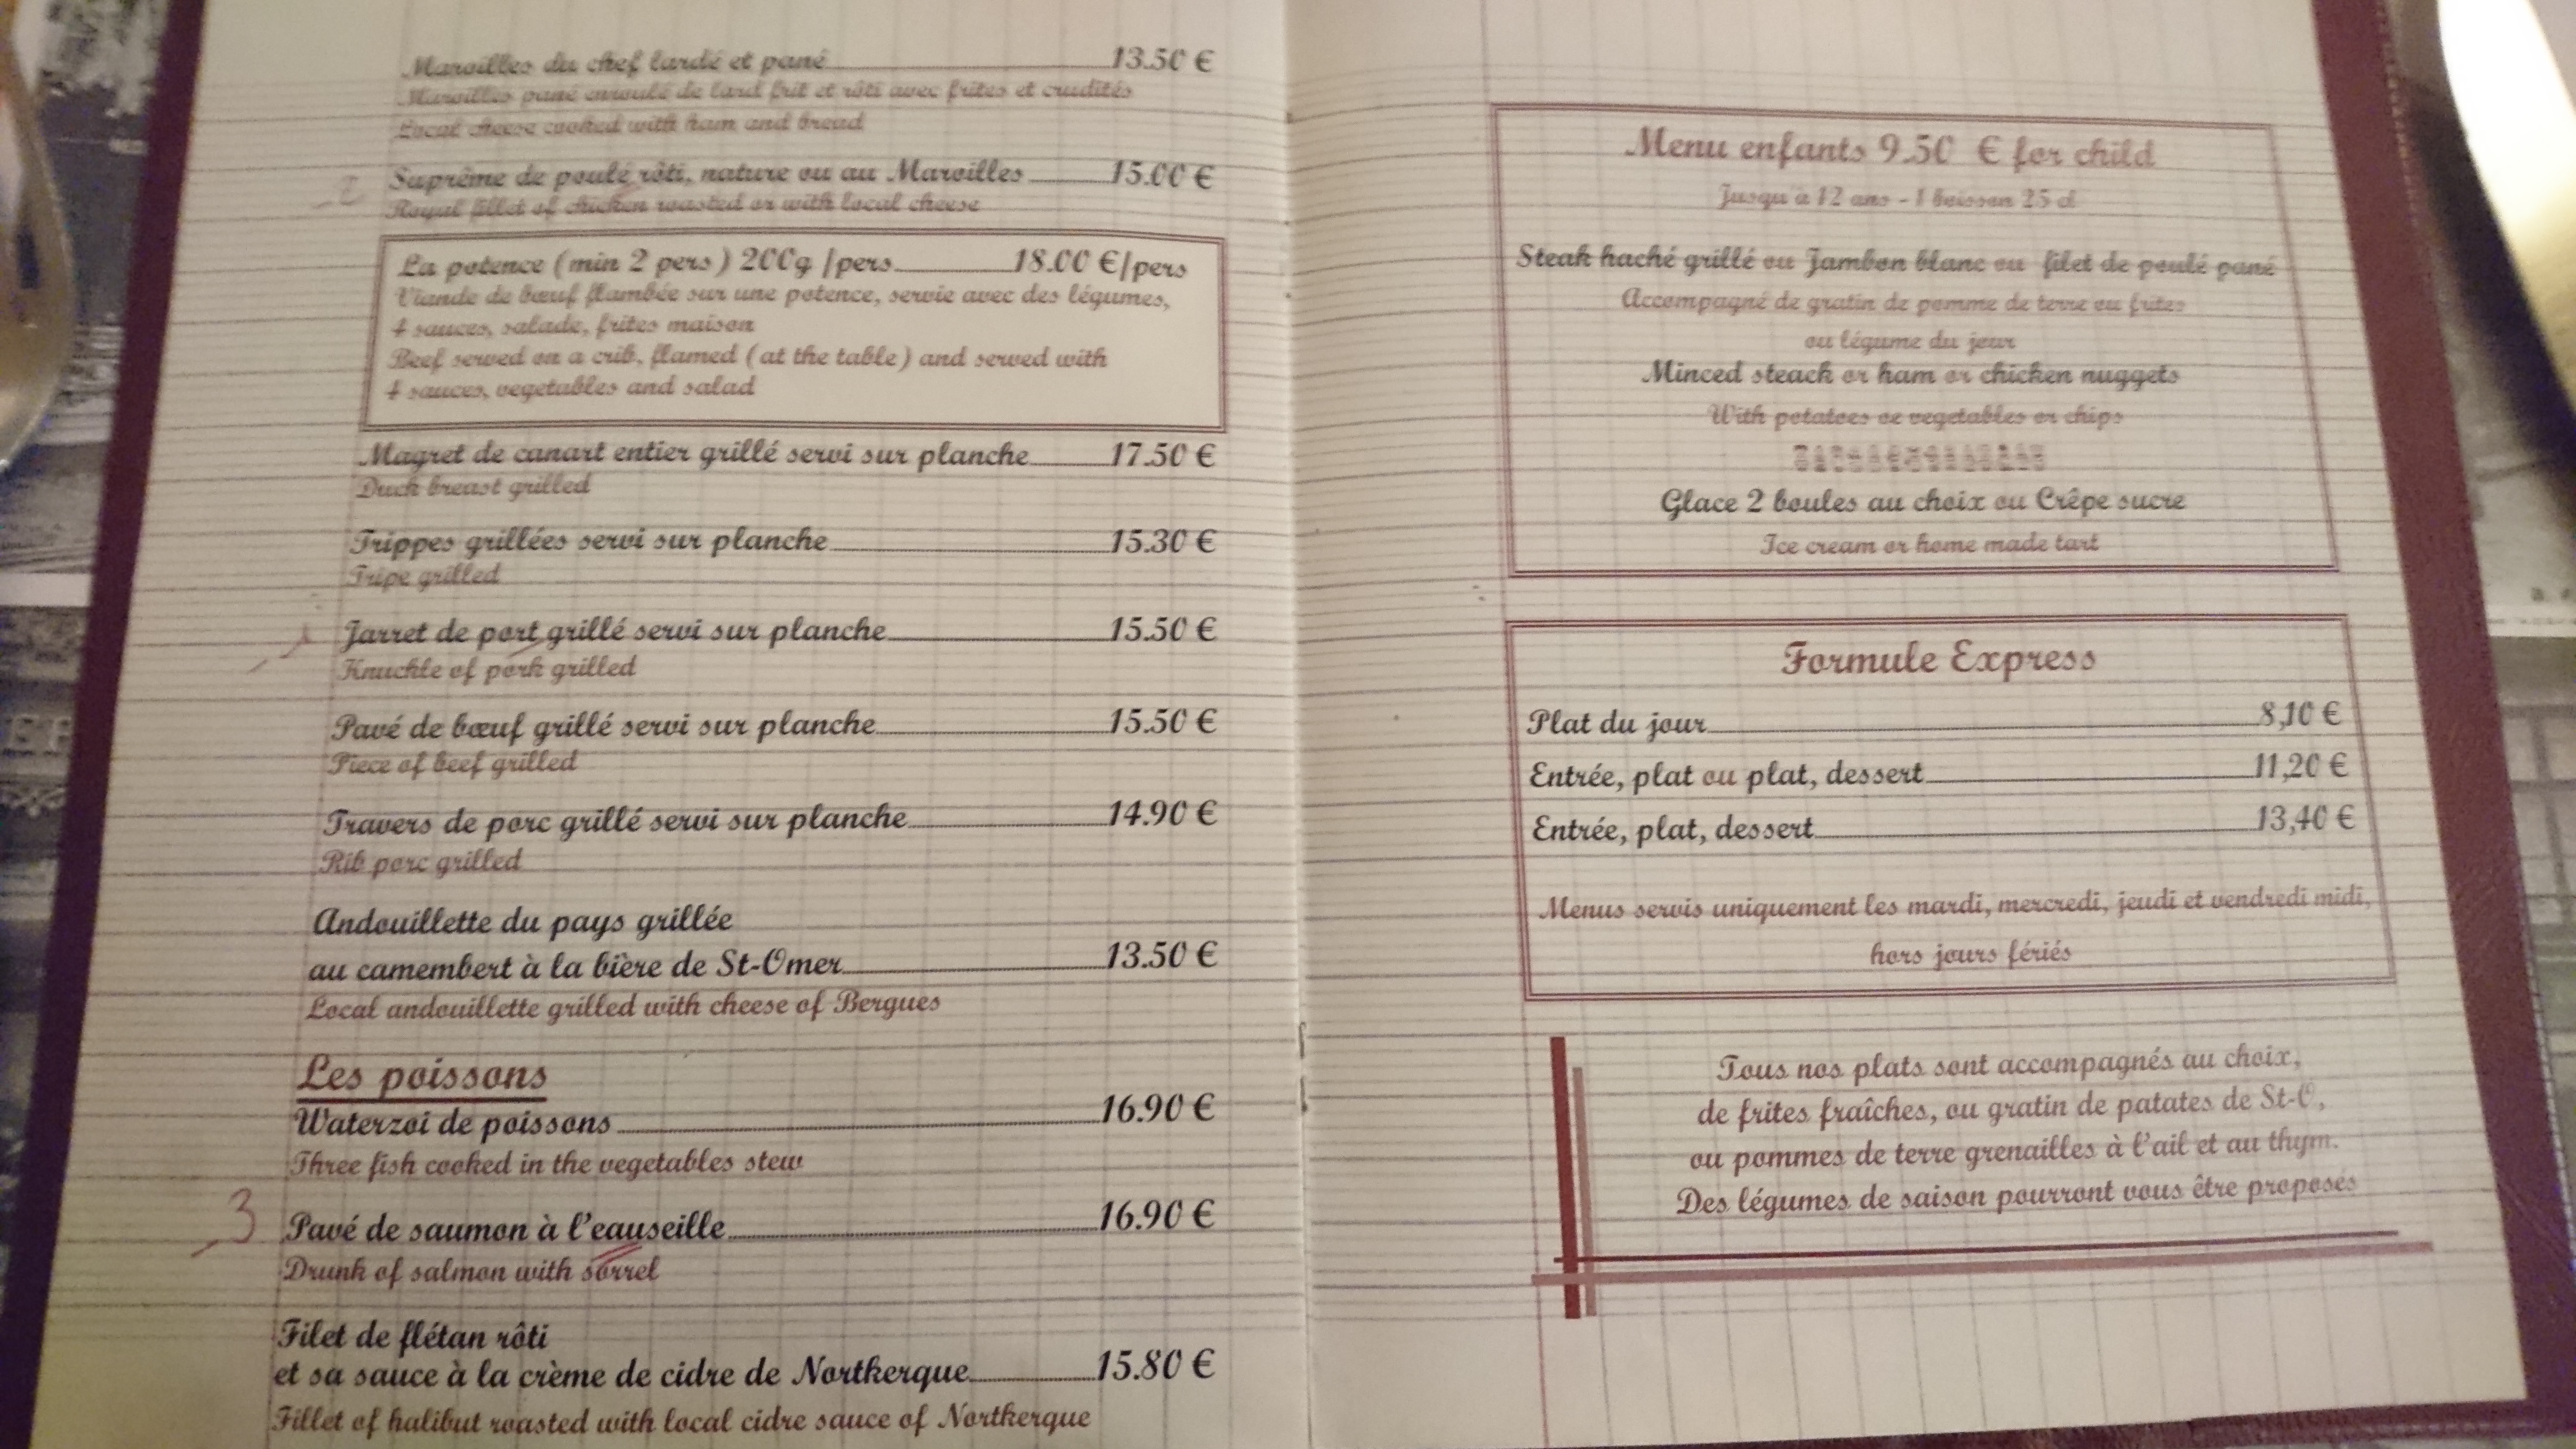 Maroilles du chef lardé et pané 13.50 €
Maroilles pané enroulé de lard frit et rôti avec frites et crudités
Local cheese cooked with ham and bread
2 Suprême de poulé rôti, nature ou au Maroilles 15.00 €
Royal fillet of chicken roasted or with local cheese
La potence (min 2 pers) 200g /pers 18.00 €/pers
Viande de bœuf flambée sur une potence, servie avec des légumes,
4 sauces, salade, frites maison
Beef served on a crib, flamed (at the table) and served with
4 sauces, vegetables and salad
Magret de canart entier grillé servi sur planche 17.50 €
Duck breast grilled
Trippes grillées servi sur planche 15.30 €
Tripe grilled
1 Jarret de port grillé servi sur planche 15.50 €
Knuckle of pork grilled
Pavé de bœuf grillé servi sur planche 15.50 €
Piece of beef grilled
Travers de porc grillé servi sur planche 14.90 €
Rib porc grilled
Andouillette du pays grillée
au camembert à la bière de St-Omer 13.50 €
Local andouillette grilled with cheese of Bergues
Les poissons
Waterzoi de poissons 16.90 €
Three fish cooked in the vegetables stew
3 Pavé de saumon à l'eauseille 16.90 €
Drunk of salmon with sorrel
Filet de flétan rôti
et sa sauce à la crème de cidre de Nortkerque 15.80 €
Fillet of halibut roasted with local cidre sauce of Nortkerque
Menu enfants 9.50 € for child
Jusqu'à 12 ans - 1 boisson 25 cl
Steak haché grillé ou Jambon blanc ou filet de poulé pané
Accompagné de gratin de pomme de terre ou frites
ou légume du jour
Minced steack or ham or chicken nuggets
With potatoes oe vegetables or chips
Glace 2 boules au choix ou Crêpe sucre
Ice cream or home made tart
Formule Express
Plat du jour 8,10 €
Entrée, plat ou plat, dessert 11,20 €
Entrée, plat, dessert 13,40 €
Menus servis uniquement les mardi, mercredi, jeudi et vendredi midi,
hors jours fériés
Tous nos plats sont accompagnés au choix,
de frites fraîches, ou gratin de patates de St-O,
ou pommes de terre grenailles à l'ail et au thym.
Des légumes de saison pourront vous être proposés